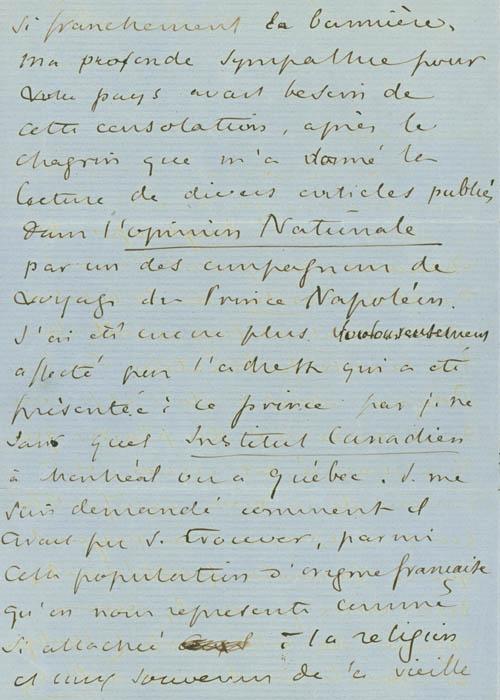 si franchement la bannière.
ma profonde sympathie pour
votre pays avait besoin de
cette consolation, après le
chagrin que m'a donné la
lecture de divers articles publiés
dans l'opinion Nationale
par un des compagnons de
voyage du Prince Napoléon.
J'ai été encore plus douloureusement
affecté par l'adresse qui a été
présentée à ce prince par je ne
sais quel Institut Canadien
à Montréal ou à Québec. Je me
suis demandé comment il
avait pu se trouver, parmi
cette population d'origine française
qu'on nous représente comme
si attachée à la religion
et aux souvenirs de la vieille